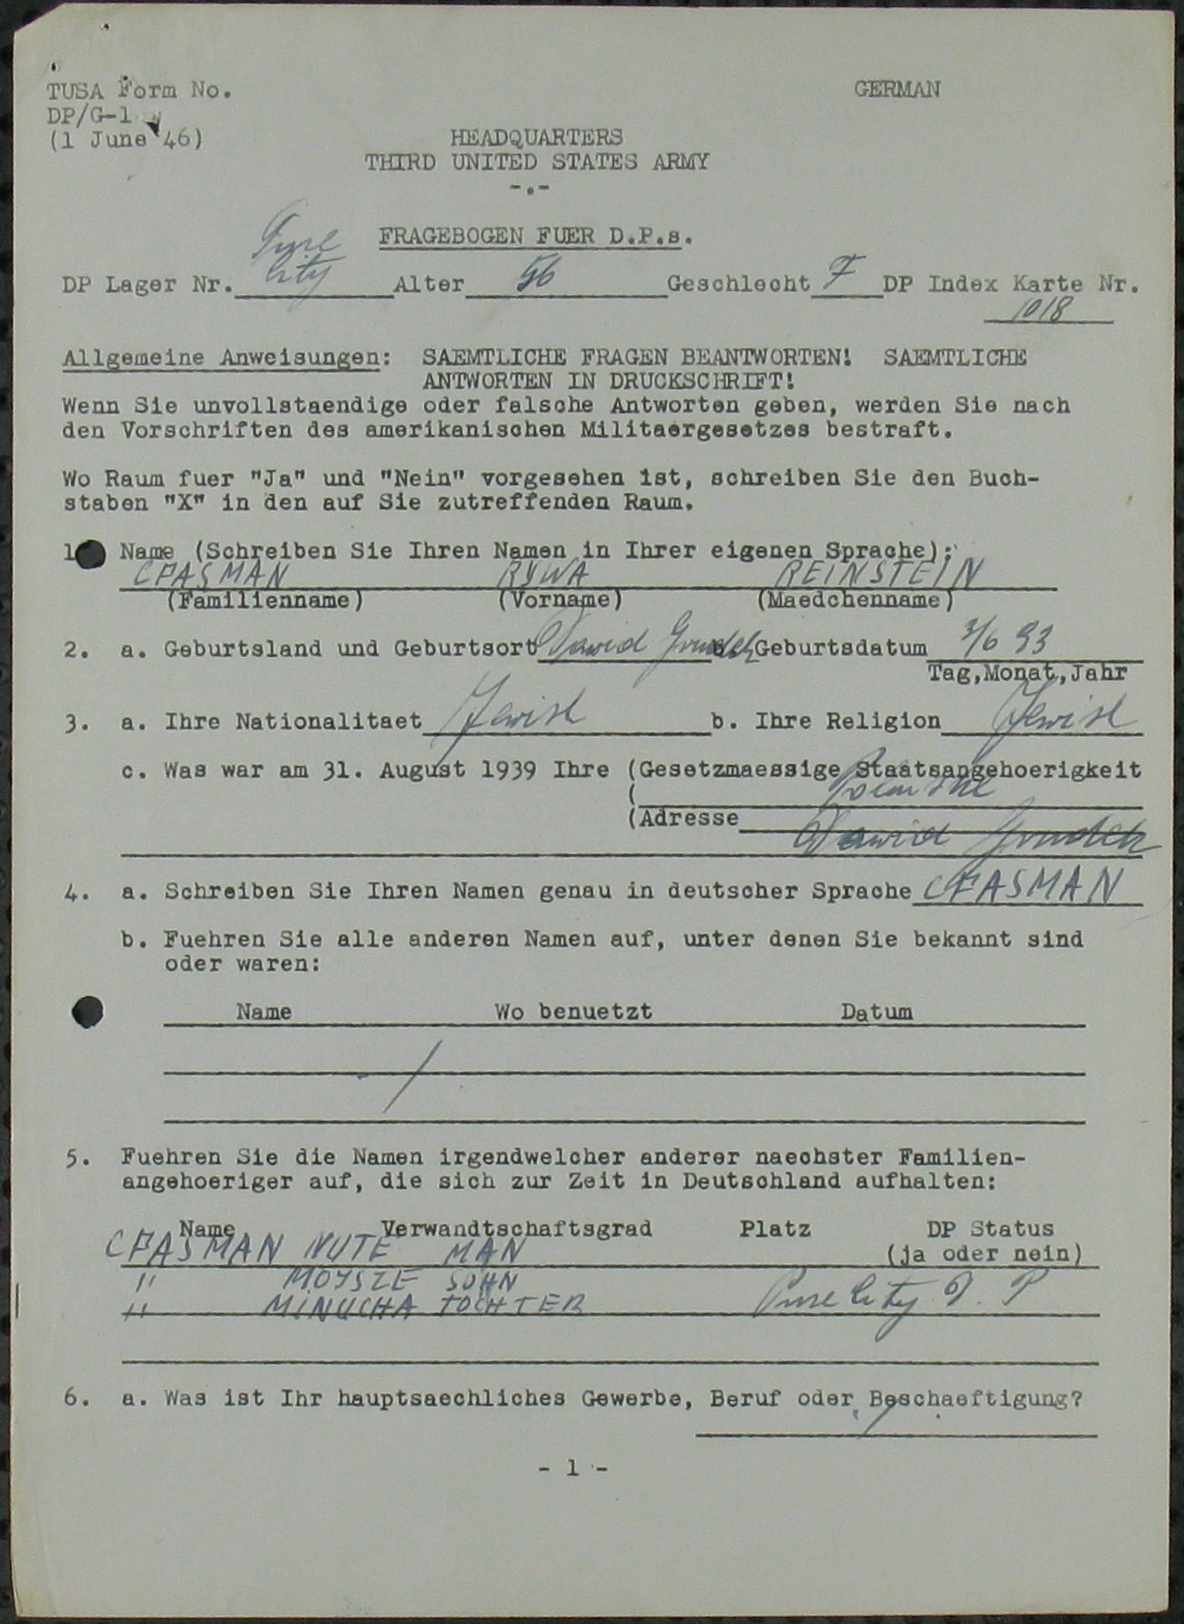 TUSA Form No.
GERMAN
DP/G-1
(1 June 46)
HEADQUARTERS
THIRD UNITED STATES ARMY
-.-
FRAGEBOGEN FUER D.P.s.
DP Lager Nr. City Alter 56 Geschlecht F DP Index Karte Nr.
1018
Allgemeine Anweisungen: SAEMTLICHE FRAGEN BEANTWORTEN! SAEMTLICHE
ANTWORTEN IN DRUCKSCHRIFT!
Wenn Sie unvollstaendige oder falsche Antworten geben, werden Sie nach
den Vorschriften des amerikanischen Militaergesetzes bestraft.
Wo Raum fuer "Ja" und "Nein" vorgesehen ist, schreiben Sie den Buch-
staben "X" in den auf Sie zutreffenden Raum.
1 Name (Schreiben Sie Ihren Namen in Ihrer eigenen Sprache):
CPASMAN RYWA REINSTEIN
(Familienname) (Vorname) (Maedchenname)
2. a. Geburtsland und Geburtsort Dawid Grudek Geburtsdatum 3/6 93
Tag,Monat,Jahr
3. a. Ihre Nationalitaet Jewish b. Ihre Religion Jewish
c. Was war am 31. August 1939 Ihre (Gesetzmaessige Staatsangehoerigkeit
(
(Adresse Dawid Grudek
4. a. Schreiben Sie Ihren Namen genau in deutscher Sprache CPASMAN
b. Fuehren Sie alle anderen Namen auf, unter denen Sie bekannt sind
oder waren:
Name Wo benuetzt Datum
5. Fuehren Sie die Namen irgendwelcher anderer naechster Familien-
angehoeriger auf, die sich zur Zeit in Deutschland aufhalten:
Name Verwandtschaftsgrad Platz DP Status
(ja oder nein)
CPASMAN NUTE MAN
" MOYSZE SOHN
" MINUCHA TOCHTER City D. P
6. a. Was ist Ihr hauptsaechliches Gewerbe, Beruf oder Beschaeftigung?
- 1 -